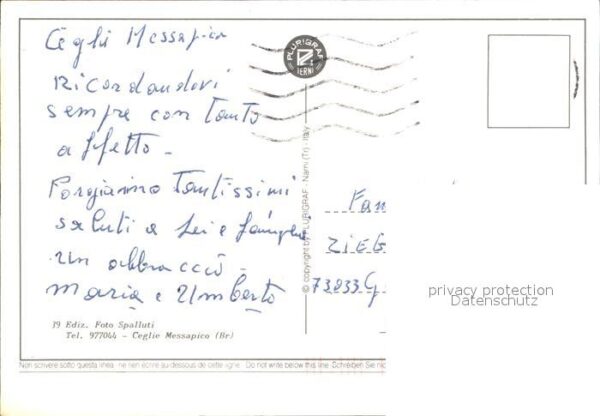 Ceglie Messapico
Ricordandovi
sempre con tanto
affetto -
Porgiamo Tantissimi
saluti a Lei e famiglia
un abbraccio -
Maria e Umberto
PLURIGRAF
TERNI
© copyright by PLURIGRAF - Narni (Tr) - Italy
Fam
ZIEG
73833 G
privacy protection
Datenschutz
39 Ediz. Foto Spalluti
Tel. 977044 - Ceglie Messapico (Br)
Non scrivere sotto questa linea - ne rien écrire au-dessous de cette ligne - Do not write below this line. Schreiben Sie nic